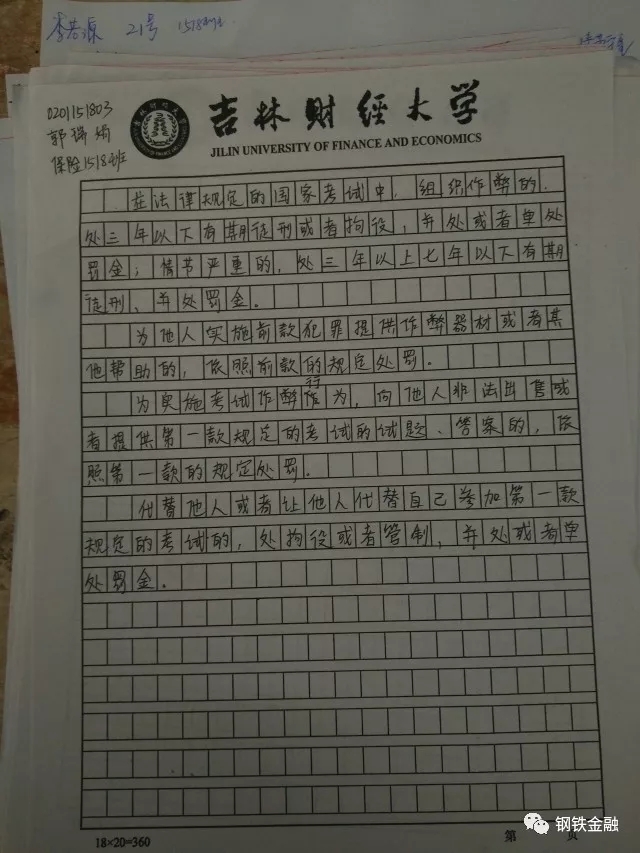 李若源 21号 1518班
0201151803
郭瑞娟
保险1518班
吉林财经大学
JILIN UNIVERSITY OF FINANCE AND ECONOMICS
在法律规定的国家考试中，组织作弊的，
处三年以下有期徒刑或者拘役，并处或者单处
罚金；情节严重的，处三年以上七年以下有期
徒刑，并处罚金。
为他人实施前款犯罪提供作弊器材或者其
他帮助的，依照前款的规定处罚。
为实施考试作弊行为，向他人非法出售或
者提供第一款规定的考试的试题、答案的，依
照第一款的规定处罚。
代替他人或者让他人代替自己参加第一款
规定的考试的，处拘役或者管制，并处或者单
处罚金。
18×20=360
第 页
钢铁金融